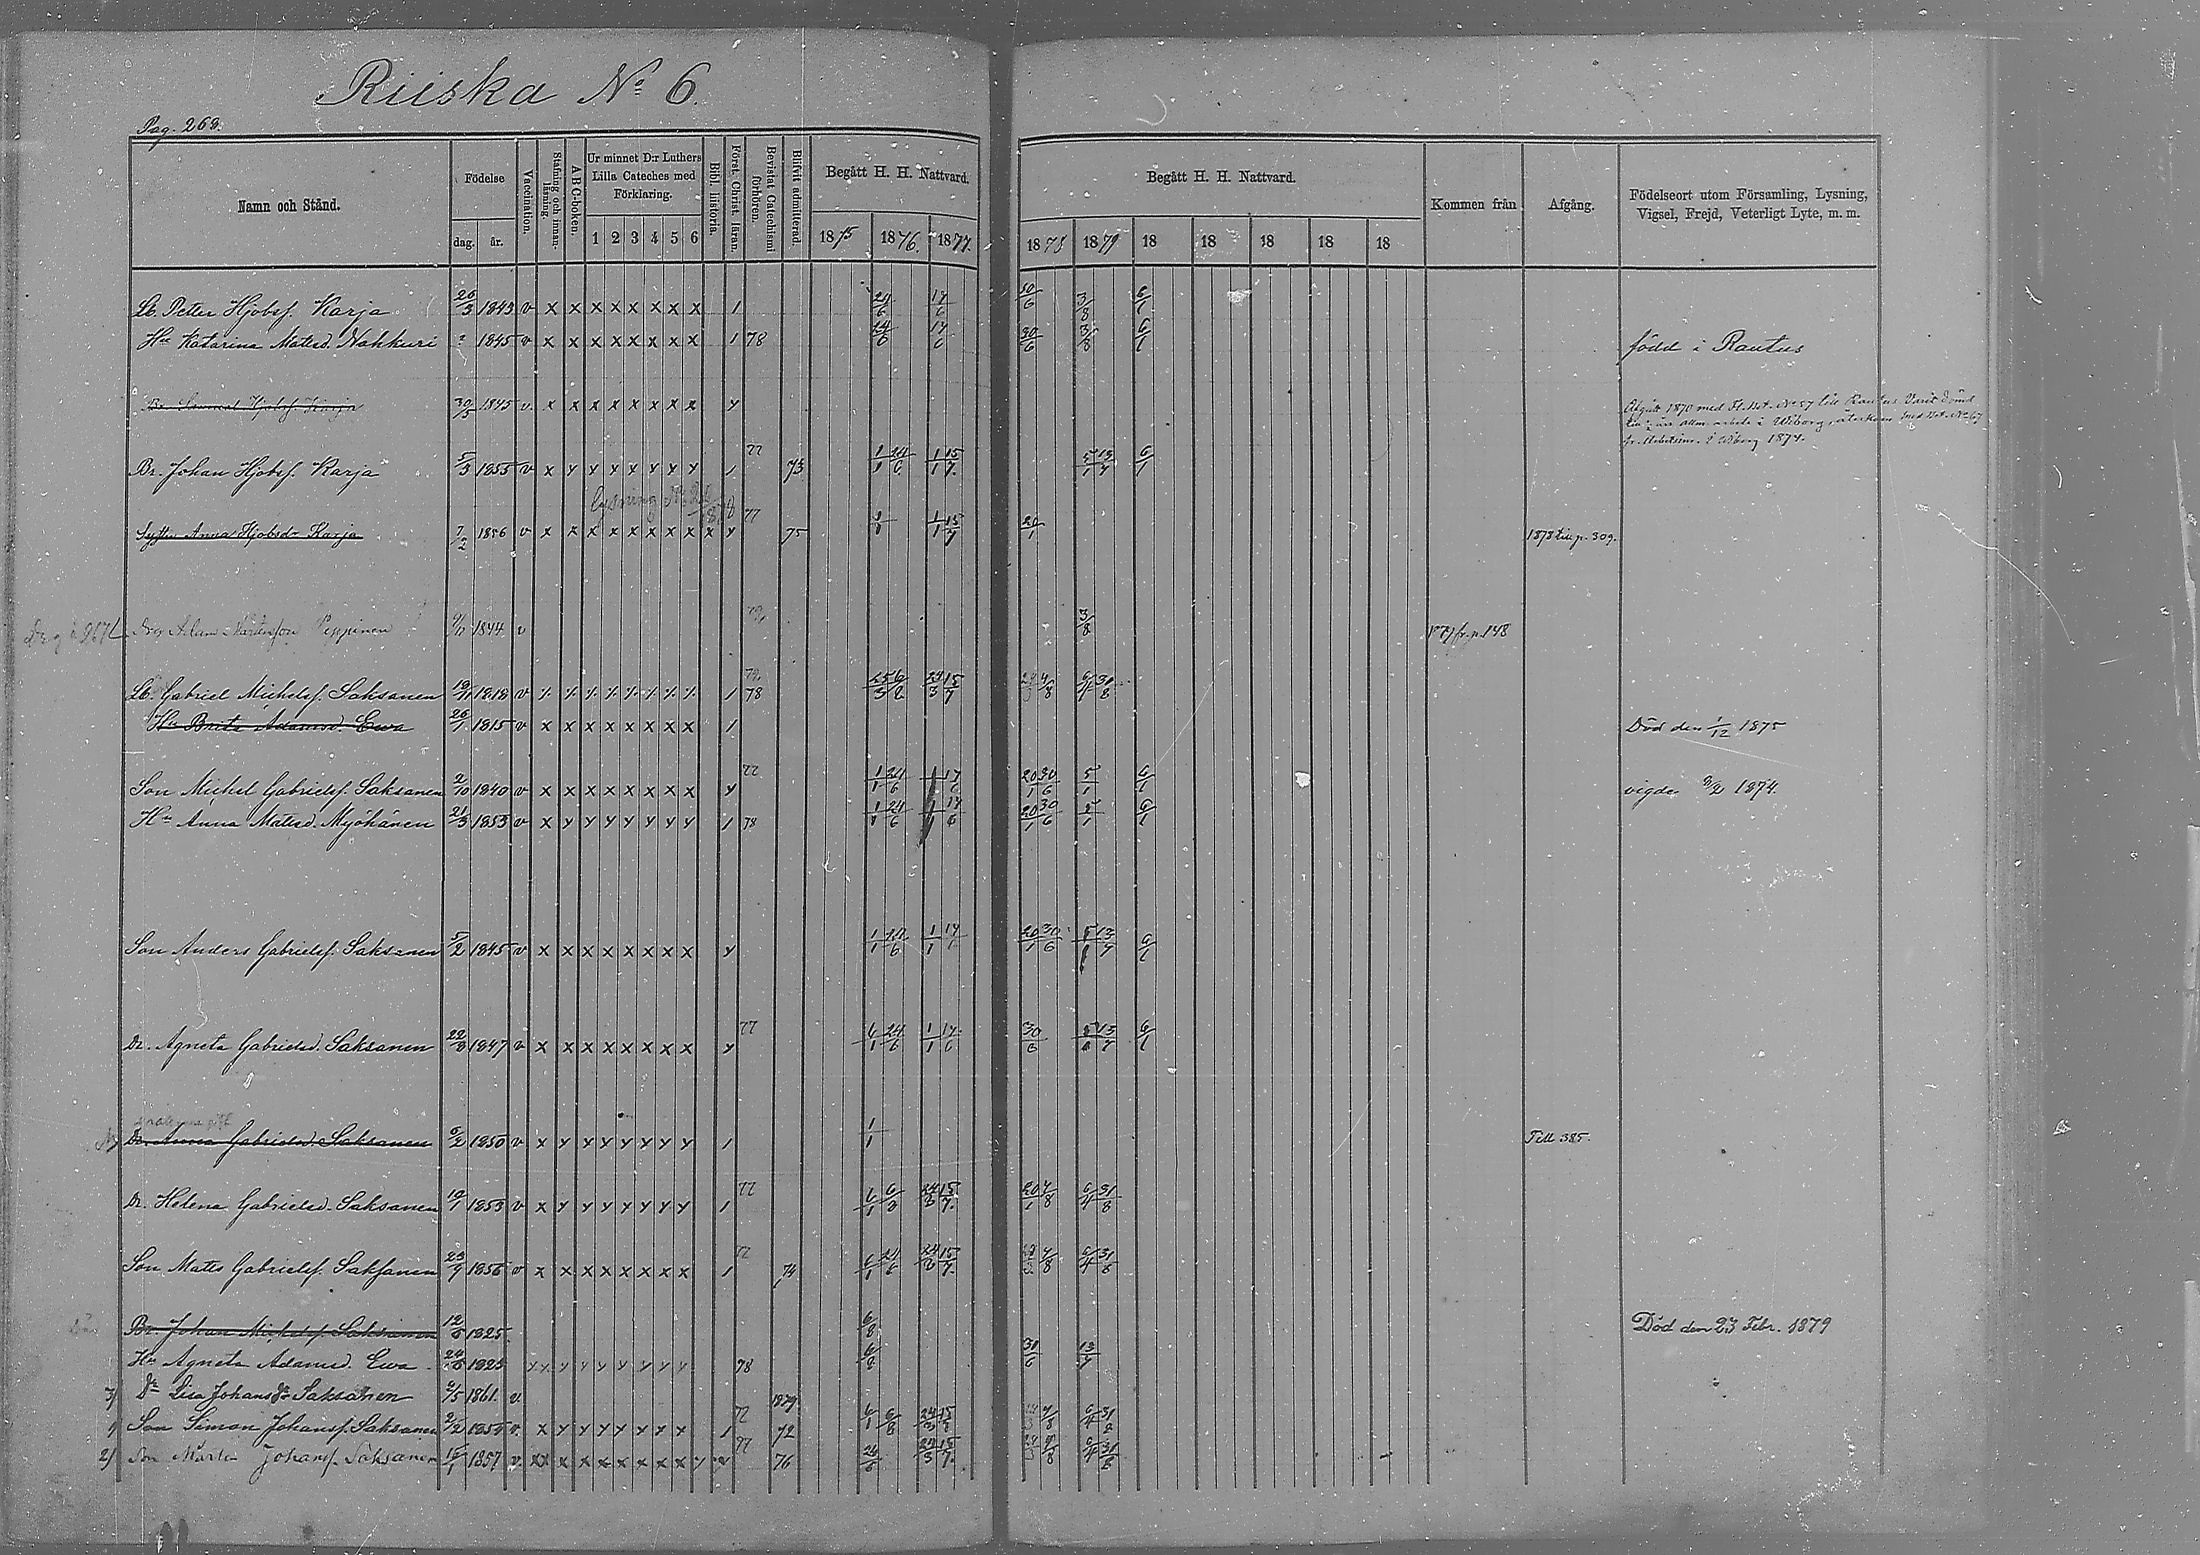 Riiska No 6.
Pag. 268.
Namn och Stånd.
Födelse
dag.
år.
Vaccination.
Stafning och innanläsning.
A B C-boken.
Ur minnet D:r Luthers Lilla Cateches med Förklaring.
1 2 3 4 5 6
Bibl. historia.
Först. Christ. läran.
Bevistat Catechismi förhören.
Blifvit admitterad.
Begått H. H. Nattvard.
1875 1876. 1877.
Begått H. H. Nattvard.
1878 1879 18 18 18 18 18
Kommen från
Afgång.
Födelseort utom Församling, Lysning, Vigsel, Frejd, Veterligt Lyte, m. m.
Lb. Peter Hjobsf. Karja 26/3 1843 v x x x x x x x x 1 24/6 17/6 30/6 3/8 6/1
Hu Katarina Matsd. Nahkuri 1845 v x x x x x x x x 1 78 24/6 17/6 30/6 3/8 6/1 född i Rautus
Br. Samuel Hjobsf. Karja 30/5 1845 v. x x x x x x x x y
Afgått 1870 med Fl. Bet. No 57 till Rautus.
i Wiborg 1874.
Br. Johan Hjobsf. Karja 5/3 1855 v x y y y y y y y 1 77 73 1/1 24/6 1/1 15/7. 5/1 13/7 6/1
lysning
Syster Anna Hjobsdr Karja 7/2 1856 v x x x x x x x x x y 77 75 1/1 1/1 15/7 20/1 1878 till p. 309.
Adam Mårtensson Peppinen 1844 v 3/8 1879 fr. p. 148
Lb. Gabriel Michelsf. Saksanen 1818 v 1 78 25/3 6/8 15/7 4/8 6/4 31/8
Hu Brita Adamsd. Ewa 26/1 1815 v x x x x x x x x 1 Död den 1/12 1875
Son Michel Gabrielsf. Saksanen 2/10 1840 v x x x x x x x x y 77 1/1 24/6 17/6 20/1 30/6 5/1 6/1 vigde 1874.
Hu Anna Matsd. Myöhänen 21/3 1853 v x y y y y y y y 1 78 1/1 24/6 17/6 20/1 30/6 5/1 6/1
Son Anders Gabrielsf. Saksanen 5/2 1845 v x x x x x x x x y 1/1 24/6 1/1 20/1 30/6 5/1 13/7 6/1
Dr. Agneta Gabrielsd. Saksanen 22/8 1847 v x x x x x x x x y 77 6/1 24/6 1/1 17/6 30/6 5/1 13/7 6/1
Dr. Anna Gabrielsd. Saksanen 6/2 1850 v x y y y y y y y 1 1/1 Till 385.
Dr. Helena Gabrielsd. Saksanen 19/1 1853 v x y y y y y y y 1 77 6/1 6/8 24/3 15/7. 20/1 4/8 6/4 31/8
Son Mats Gabrielsf. Saksanen 23/9 1856 v x x x x x x x x 1 77 74 6/1 24/6 24/3 15/7. 4/8 6/4 31/8
Br. Johan Michelsf. Saksanen 1825 6/8 Död den 23 Febr. 1879
Hu Agneta Adamsd. Ewa 1825 78 6/8 30/6 13/7
3) Dr Lisa Johansdr Saksanen 1861. v. 1879
1) Son Simon Johansf. Saksanen 2/2 1855 v. x y y y y y y y 1 77 72 6/1 6/8 24/3 15/7 4/8 6/4 31/8
2) Son Mårten Johansf. Saksanen 1857 v. 77 76 24/6 15/7. 6/4 31/8